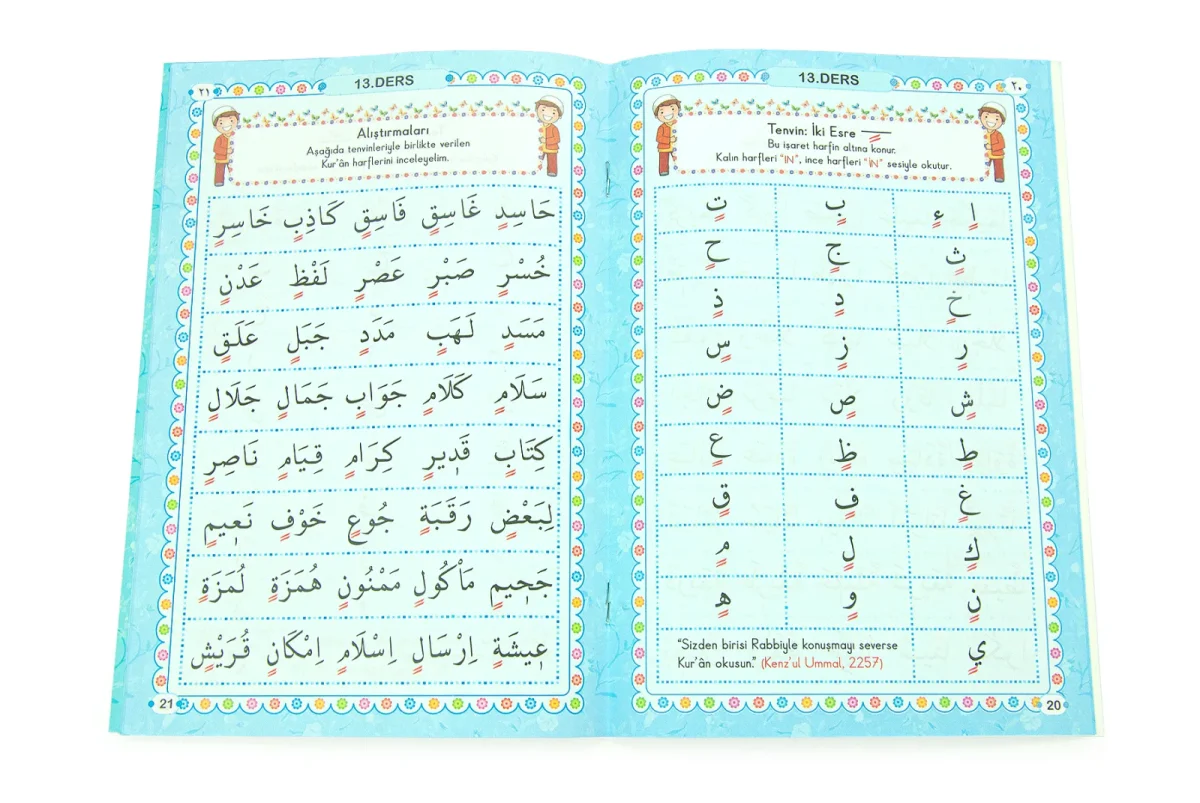 ٢٠
13.DERS
Tenvin: İki Esre
Bu işaret harfin altına konur.
Kalın harfleri “IN”, ince harfleri “İN” sesiyle okutur.
اٍ ءٍ بٍ تٍ
ثٍ جٍ حٍ
خٍ دٍ ذٍ
رٍ زٍ سٍ
شٍ صٍ ضٍ
طٍ ظٍ عٍ
غٍ فٍ قٍ
كٍ لٍ مٍ
نٍ وٍ هٍ
يٍ
“Sizden birisi Rabbiyle konuşmayı severse
Kur’ân okusun.” (Kenz’ul Ummal, 2257)
20
٢١
13.DERS
Alıştırmaları
Aşağıda tenvinleriyle birlikte verilen
Kur’ân harflerini inceleyelim.
حَاسِدٍ غَاسِقٍ فَاسِقٍ كَاذِبٍ خَاسِرٍ
خُسْرٍ صَبْرٍ عَصْرٍ لَفْظٍ عَدْنٍ
مَسَدٍ لَهَبٍ مَدَدٍ جَبَلٍ عَلَقٍ
سَلَامٍ كَلَامٍ جَوَابٍ جَمَالٍ جَلَالٍ
كِتَابٍ قَدٖيرٍ كِرَامٍ قِيَامٍ نَاصِرٍ
لِبَعْضٍ رَقَبَةٍ جُوعٍ خَوْفٍ نَعٖيمٍ
جَحٖيمٍ مَاْكُولٍ مَمْنُونٍ هُمَزَةٍ لُمَزَةٍ
عٖيشَةٍ اِرْسَالٍ اِسْلَامٍ اِمْكَانٍ قُرَيْشٍ
21